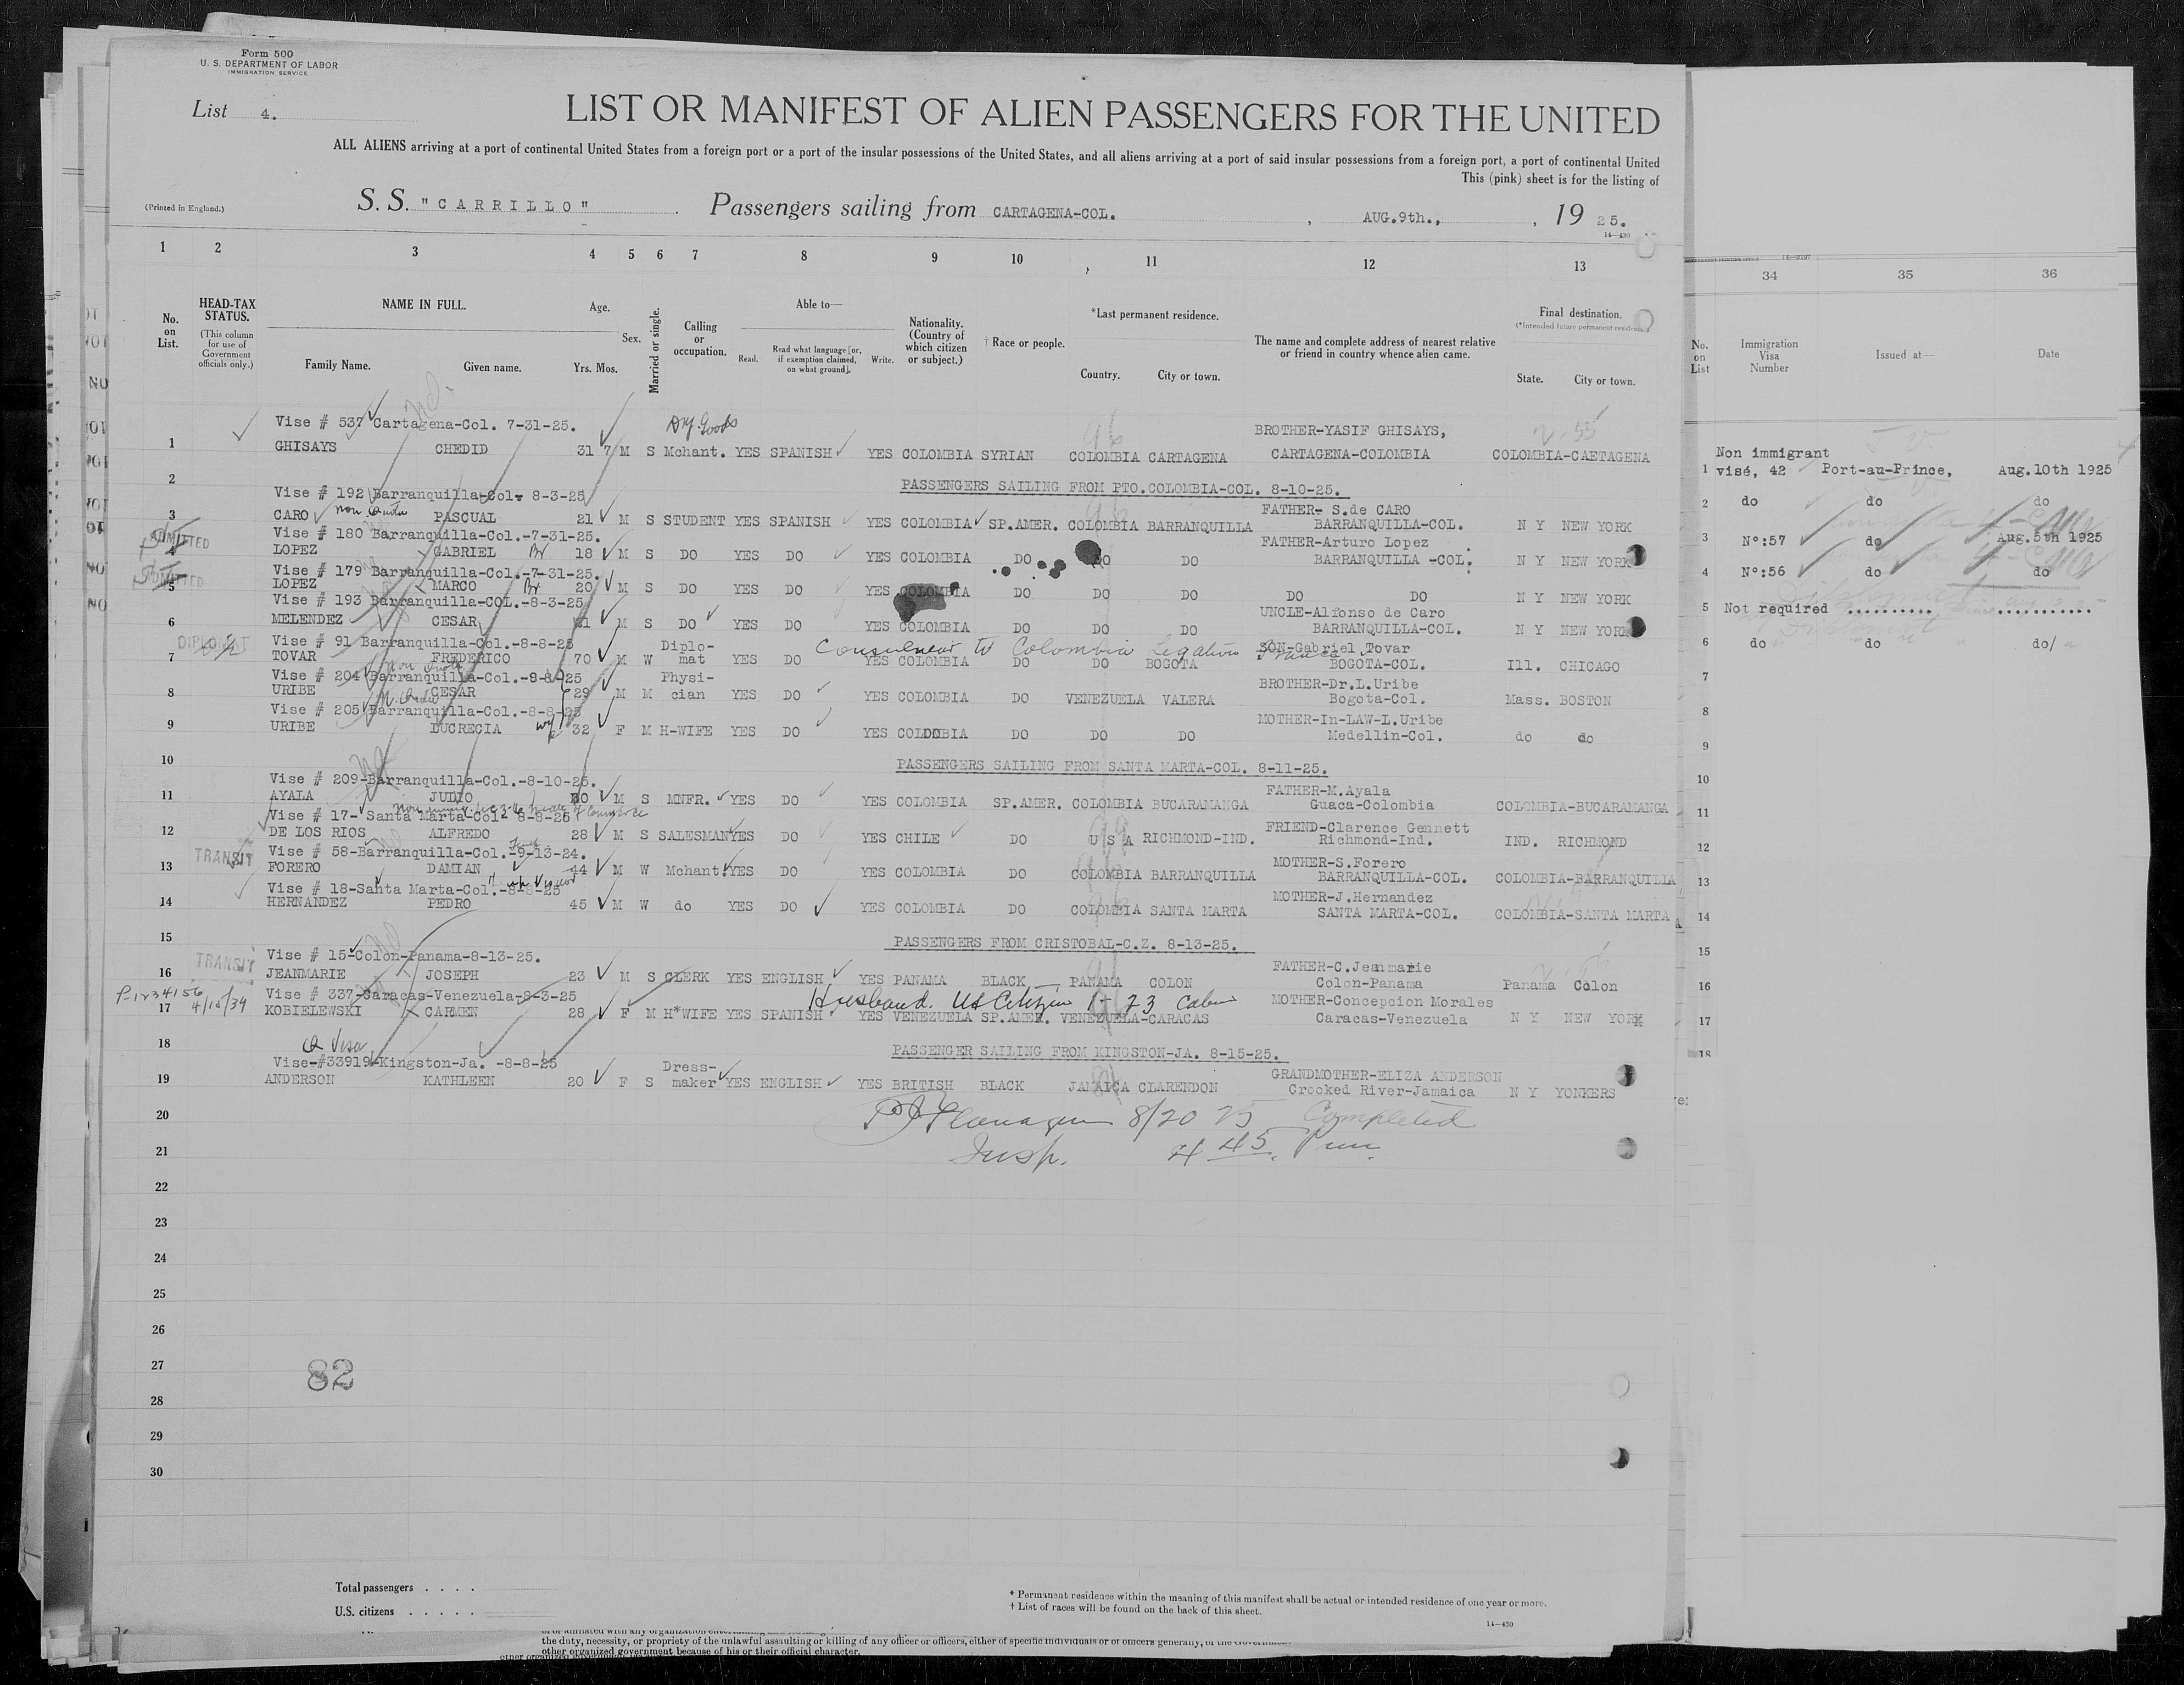 Form 500
U. S. DEPARTMENT OF LABOR
IMMIGRATION SERVICE
List 4.
LIST OR MANIFEST OF ALIEN PASSENGERS FOR THE UNITED
ALL ALIENS arriving at a port of continental United States from a foreign port or a port of the insular possessions of the United States, and all aliens arriving at a port of said insular possessions from a foreign port, a port of continental United
This (pink) sheet is for the listing of
(Printed in England.)
S. S. "CARRILLO" Passengers sailing from CARTAGENA-COL. , AUG.9th., , 19 25.
14—430
1 2 3 4 5 6 7 8 9 10 11 12 13
No. on List.
HEAD-TAX STATUS.
(This column for use of Government officials only.)
NAME IN FULL.
Family Name. Given name.
Age.
Yrs. Mos.
Sex.
Married or single.
Calling or occupation.
Able to—
Read. Read what language [or, if exemption claimed, on what ground]. Write.
Nationality. (Country of which citizen or subject.)
† Race or people.
*Last permanent residence.
Country. City or town.
The name and complete address of nearest relative or friend in country whence alien came.
Final destination.
(*Intended future permanent residence.)
State. City or town.
Vise # 537 Cartagena-Col. 7-31-25. Dry Goods BROTHER-YASIF GHISAYS,
1 GHISAYS CHEDID 31 7 M S Mchant. YES SPANISH YES COLOMBIA SYRIAN COLOMBIA CARTAGENA CARTAGENA-COLOMBIA COLOMBIA-CAETAGENA
2 PASSENGERS SAILING FROM PTO.COLOMBIA-COL. 8-10-25.
Vise # 192 Barranquilla-Col- 8-3-25
FATHER- S.de CARO
3 CARO Non Quota PASCUAL 21 M S STUDENT YES SPANISH YES COLOMBIA SP.AMER. COLOMBIA BARRANQUILLA BARRANQUILLA-COL. N Y NEW YORK
ADMITTED Vise # 180 Barranquilla-Col.-7-31-25. FATHER-Arturo Lopez
4 LOPEZ GABRIEL Br 18 M S DO YES DO YES COLOMBIA DO DO DO BARRANQUILLA -COL. N Y NEW YORK
ADMITTED Vise # 179 Barranquilla-Col.-7-31-25.
5 LOPEZ MARCO Br 20 M S DO YES DO YES COLOMBIA DO DO DO DO DO N Y NEW YORK
Vise # 193 Barranquilla-COL.-8-3-25 UNCLE-Alfonso de Caro
6 MELENDEZ CESAR M S DO YES DO YES COLOMBIA DO DO DO BARRANQUILLA-COL. N Y NEW YORK
DIPLOMAT Vise # 91 Barranquilla-Col.-8-8-25 Diplo- Colombia Legation France SON-Gabriel Tovar
7 TOVAR FREDERICO 70 M W mat YES DO YES COLOMBIA DO DO BOGOTA BOGOTA-COL. Ill. CHICAGO
Non Quota
Vise # 204 Barranquilla-Col.-8-8-25 Physi- BROTHER-Dr.L.Uribe
8 URIBE CESAR 29 M M cian YES DO YES COLOMBIA DO VENEZUELA VALERA Bogota-Col. Mass. BOSTON
Vise # 205 Barranquilla-Col.-8-8-25 MOTHER-In-LAW-L.Uribe
9 URIBE LUCRECIA wife 32 F M H-WIFE YES DO YES COLOMBIA DO DO DO Medellin-Col. do do
10 PASSENGERS SAILING FROM SANTA MARTA-COL. 8-11-25.
Vise # 209-Barranquilla-Col.-8-10-25. FATHER-M.Ayala
11 AYALA JULIO 30 M S MNFR. YES DO YES COLOMBIA SP.AMER. COLOMBIA BUCARAMANGA Guaca-Colombia COLOMBIA-BUCARAMANGA
Vise # 17- Santa Marta-Col- 8-8-25 FRIEND-Clarence Gennett
12 DE LOS RIOS ALFREDO 28 M S SALESMAN YES DO YES CHILE DO U S A RICHMOND-IND. Richmond-Ind. IND. RICHMOND
TRANSIT Vise # 58-Barranquilla-Col.-9-13-24. MOTHER-S.Forero
13 FORERO DAMIAN 44 M W Mchant. YES DO YES COLOMBIA DO COLOMBIA BARRANQUILLA BARRANQUILLA-COL. COLOMBIA-BARRANQUILLA
Vise # 18-Santa Marta-Col.-8-8-25 MOTHER-J.Hernandez
14 HERNANDEZ PEDRO 45 M W do YES DO YES COLOMBIA DO COLOMBIA SANTA MARTA SANTA MARTA-COL. COLOMBIA-SANTA MARTA
15 PASSENGERS FROM CRISTOBAL-C.Z. 8-13-25.
TRANSIT Vise # 15-Colon-Panama-8-13-25. FATHER-C.Jeanmarie
16 JEANMARIE JOSEPH 23 M S CLERK YES ENGLISH YES PANAMA BLACK PANAMA COLON Colon-Panama Panama Colon
P-1234156 4/15/39 Vise # 337-Caracas-Venezuela-8-3-25 Husband. US Citizen 1-73 Cabin MOTHER-Concepcion Morales
17 KOBIELEWSKI CARMEN 28 F M H*WIFE YES SPANISH YES VENEZUELA SP.AMER. VENEZUELA-CARACAS Caracas-Venezuela N Y NEW YORK
18 PASSENGER SAILING FROM KINGSTON-JA. 8-15-25.
Q Visa
Vise-#33919-Kingston-Ja. -8-8-25 Dress- GRANDMOTHER-ELIZA ANDERSON
19 ANDERSON KATHLEEN 20 F S maker YES ENGLISH YES BRITISH BLACK JAMAICA CLARENDON Crooked River-Jamaica N Y YONKERS
20 Flanagan 8/20 25 Completed
21 Insp. 4 45. Pm.
22
23
24
25
26
27
82
28
29
30
Total passengers . . . .
U.S. citizens . . . . .
* Permanent residence within the meaning of this manifest shall be actual or intended residence of one year or more.
† List of races will be found on the back of this sheet.
14—430
the duty, necessity, or propriety of the unlawful assaulting or killing of any officer or officers, either of specific individuals or of officers generally, of the
other organized government because of his or their official character.
34 35 36
No. on List
Immigration Visa Number
Issued at—
Date
Non immigrant
1 visé, 42 Port-au-Prince, Aug.10th 1925
2 do do do
3 N°:57 do Aug.5th 1925
4 N°:56 do do
5 Not required ........... ............
6 do do do
7
8
9
10
11
12
13
14
15
16
17
18